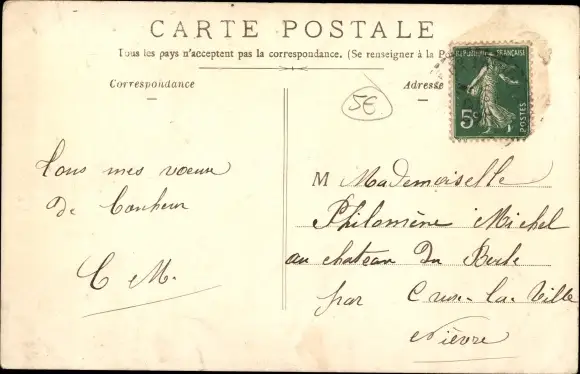 CARTE POSTALE
Tous les pays n'acceptent pas la correspondance. (Se renseigner à la Po
Correspondance
Adresse
5€
REPUBLIQUE FRANÇAISE
5c
POSTES
Tous mes voeux
de bonheur
C M.
M Mademoiselle
Philomène Michel
au chateau du
par Crux-la-Ville
Nièvre